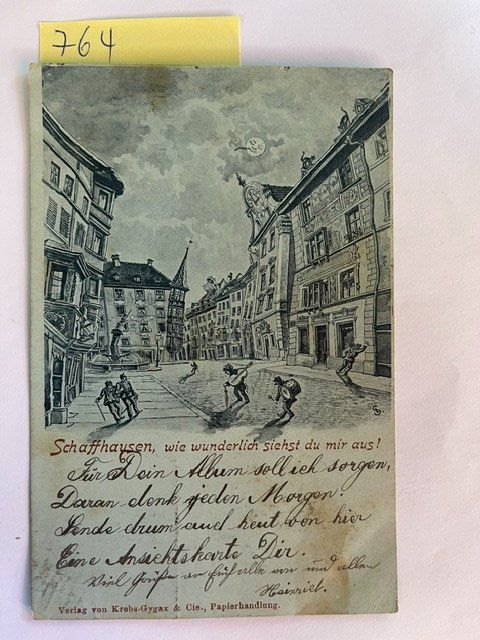 764
Schaffhausen, wie wunderlich siehst du mir aus!
Für Dein Album soll ich sorgen,
Daran denk jeden Morgen!
Sende drum auch heut von hier
Eine Ansichtskarte Dir.
Viel Grüße an Euch alle von und allen
Heinrich.
Verlag von Krebs-Gygax & Cie., Papierhandlung.